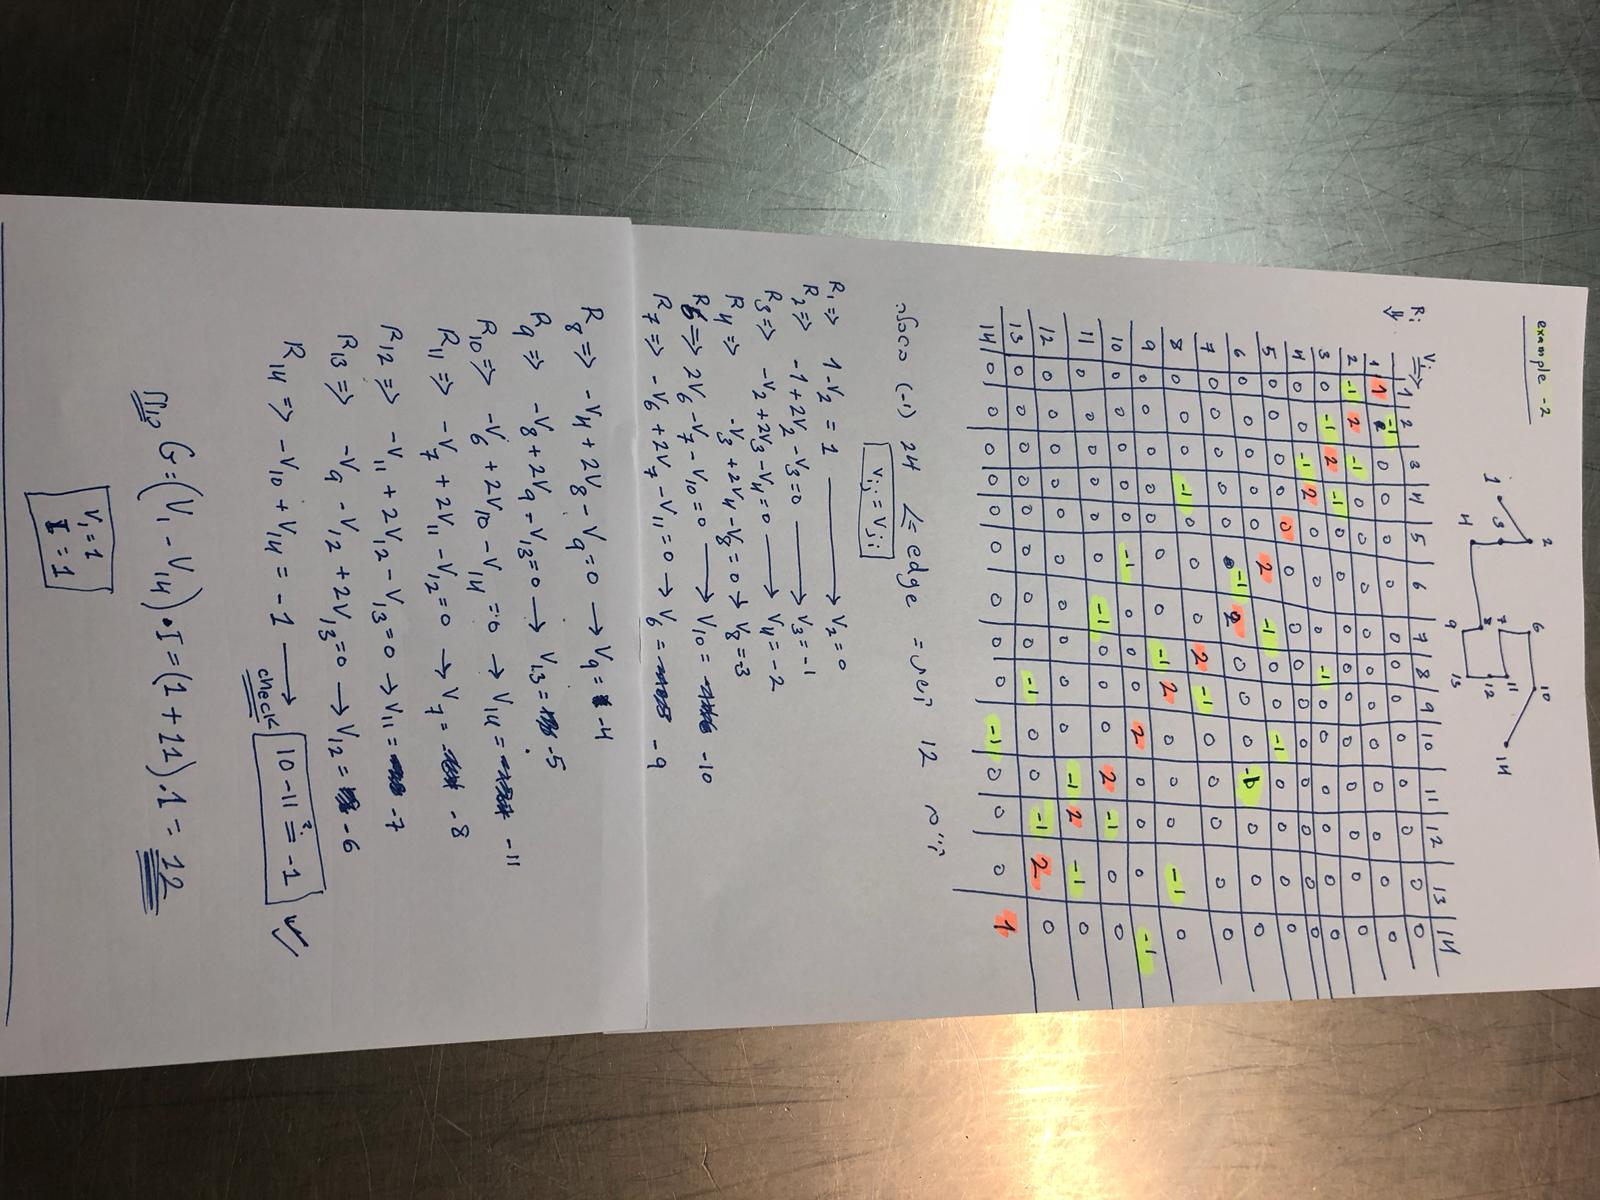 example -2
2
6
10
1
3
7
11
14
8
12
4
9
13
Vi ⇒
Ri ⇓
1 2 3 4 5 6 7 8 9 10 11 12 13 14
1 1 -1 0 0 0 0 0 0 0 0 0 0 0 0
2 -1 2 -1 0 0 0 0 0 0 0 0 0 0 0
3 0 -1 2 -1 0 0 0 0 0 0 0 0 0 0
4 0 0 -1 2 0 0 0 -1 0 0 0 0 0 0
5 0 0 0 0 0 0 0 0 0 0 0 0 0 0
6 0 0 0 0 0 2 -1 0 0 -1 0 0 0 0
7 0 0 0 0 0 -1 2 0 0 0 0 0 0
8 0 0 0 -1 0 0 0 2 -1 0 0 0 0 0
9 0 0 0 0 0 0 0 -1 2 0 0 0 -1 0
10 0 0 0 0 0 -1 0 0 0 2 0 0 0 -1
11 0 0 0 0 0 0 -1 0 0 0 2 -1 0 0
12 0 0 0 0 0 0 0 0 0 0 -1 2 -1 0
13 0 0 0 0 0 0 0 0 -1 0 0 -1 2 0
14 0 0 0 0 0 0 0 0 0 -1 0 0 0 1
12 = edge => 24 (-1)
Vij = Vji
R1 => 1-V2 = 1 → V2 = 0
R2 => -1+2V2-V3=0 → V3=-1
R3 => -V2+2V3-V4=0 → V4=-2
R4 => -V3+2V4-V8=0 → V8=-3
R6 => 2V6-V7-V10=0 → V10= -10
R7 => -V6+2V7-V11=0 → V6= -9
R8 => -V4+2V8-V9=0 → V9= -4
R9 => -V8+2V9-V13=0 → V13= -5
R10 => -V6+2V10-V14=0 → V14= -11
R11 => -V7+2V11-V12=0 → V7= -8
R12 => -V11+2V12-V13=0 → V11= -7
R13 => -V9-V12+2V13=0 → V12= -6
R14 => -V10+V14=-1 → check 10-11 ?= -1
G=(V1-V14)·I=(1+11)·1=12
V1=1
I=1